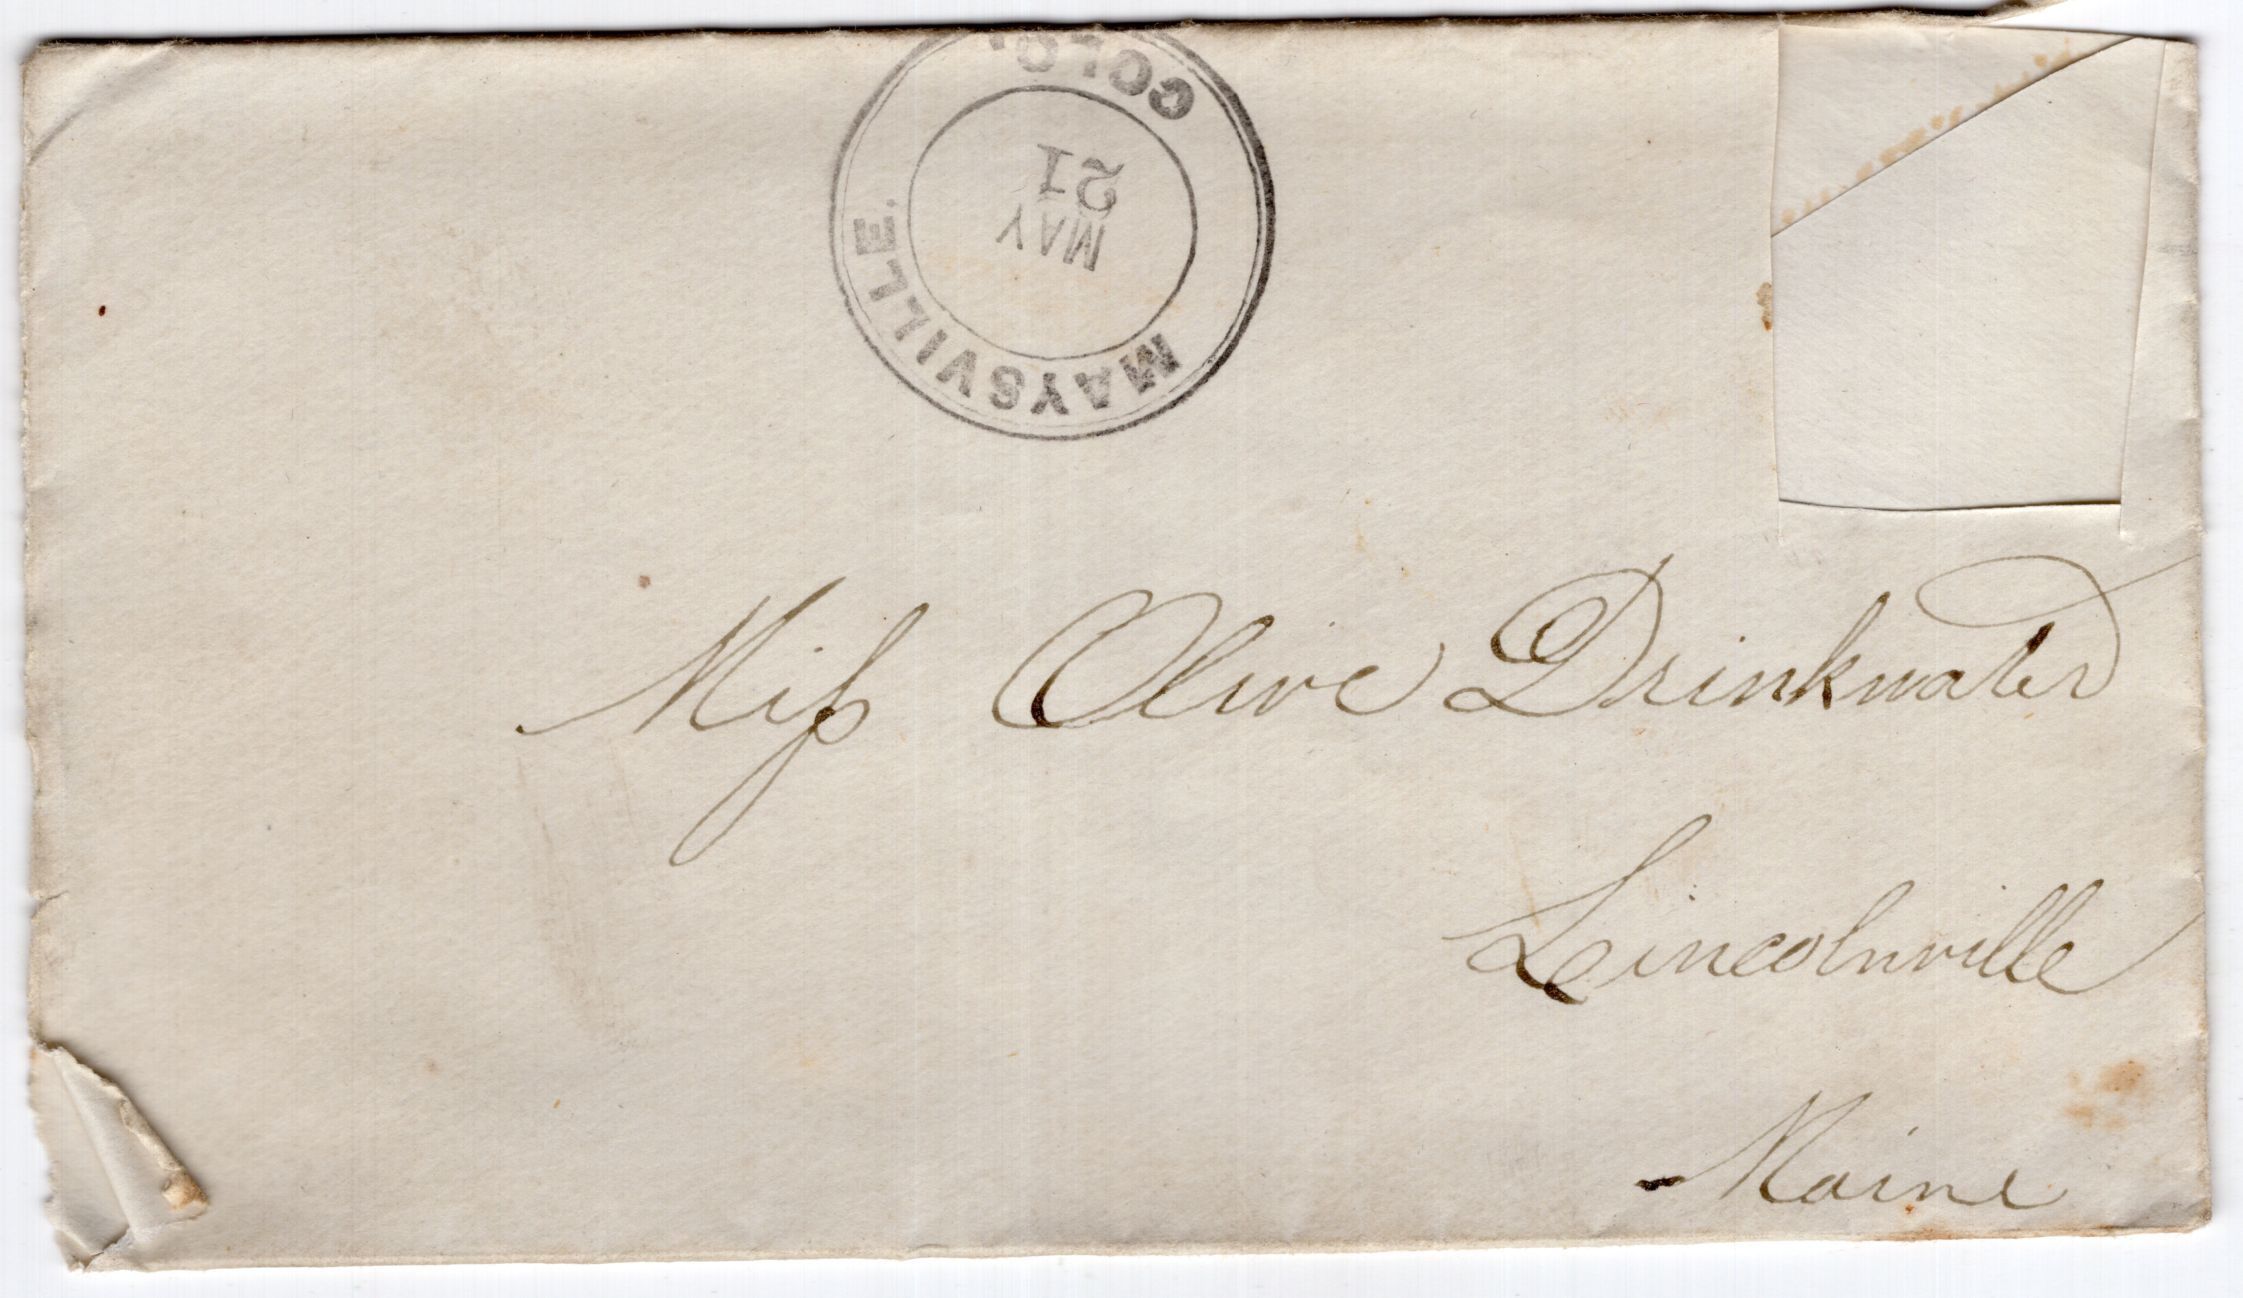 MAYSVILLE.
COLO.
MAY
21
Miss Olive Drinkwater
Lincolnville
Maine